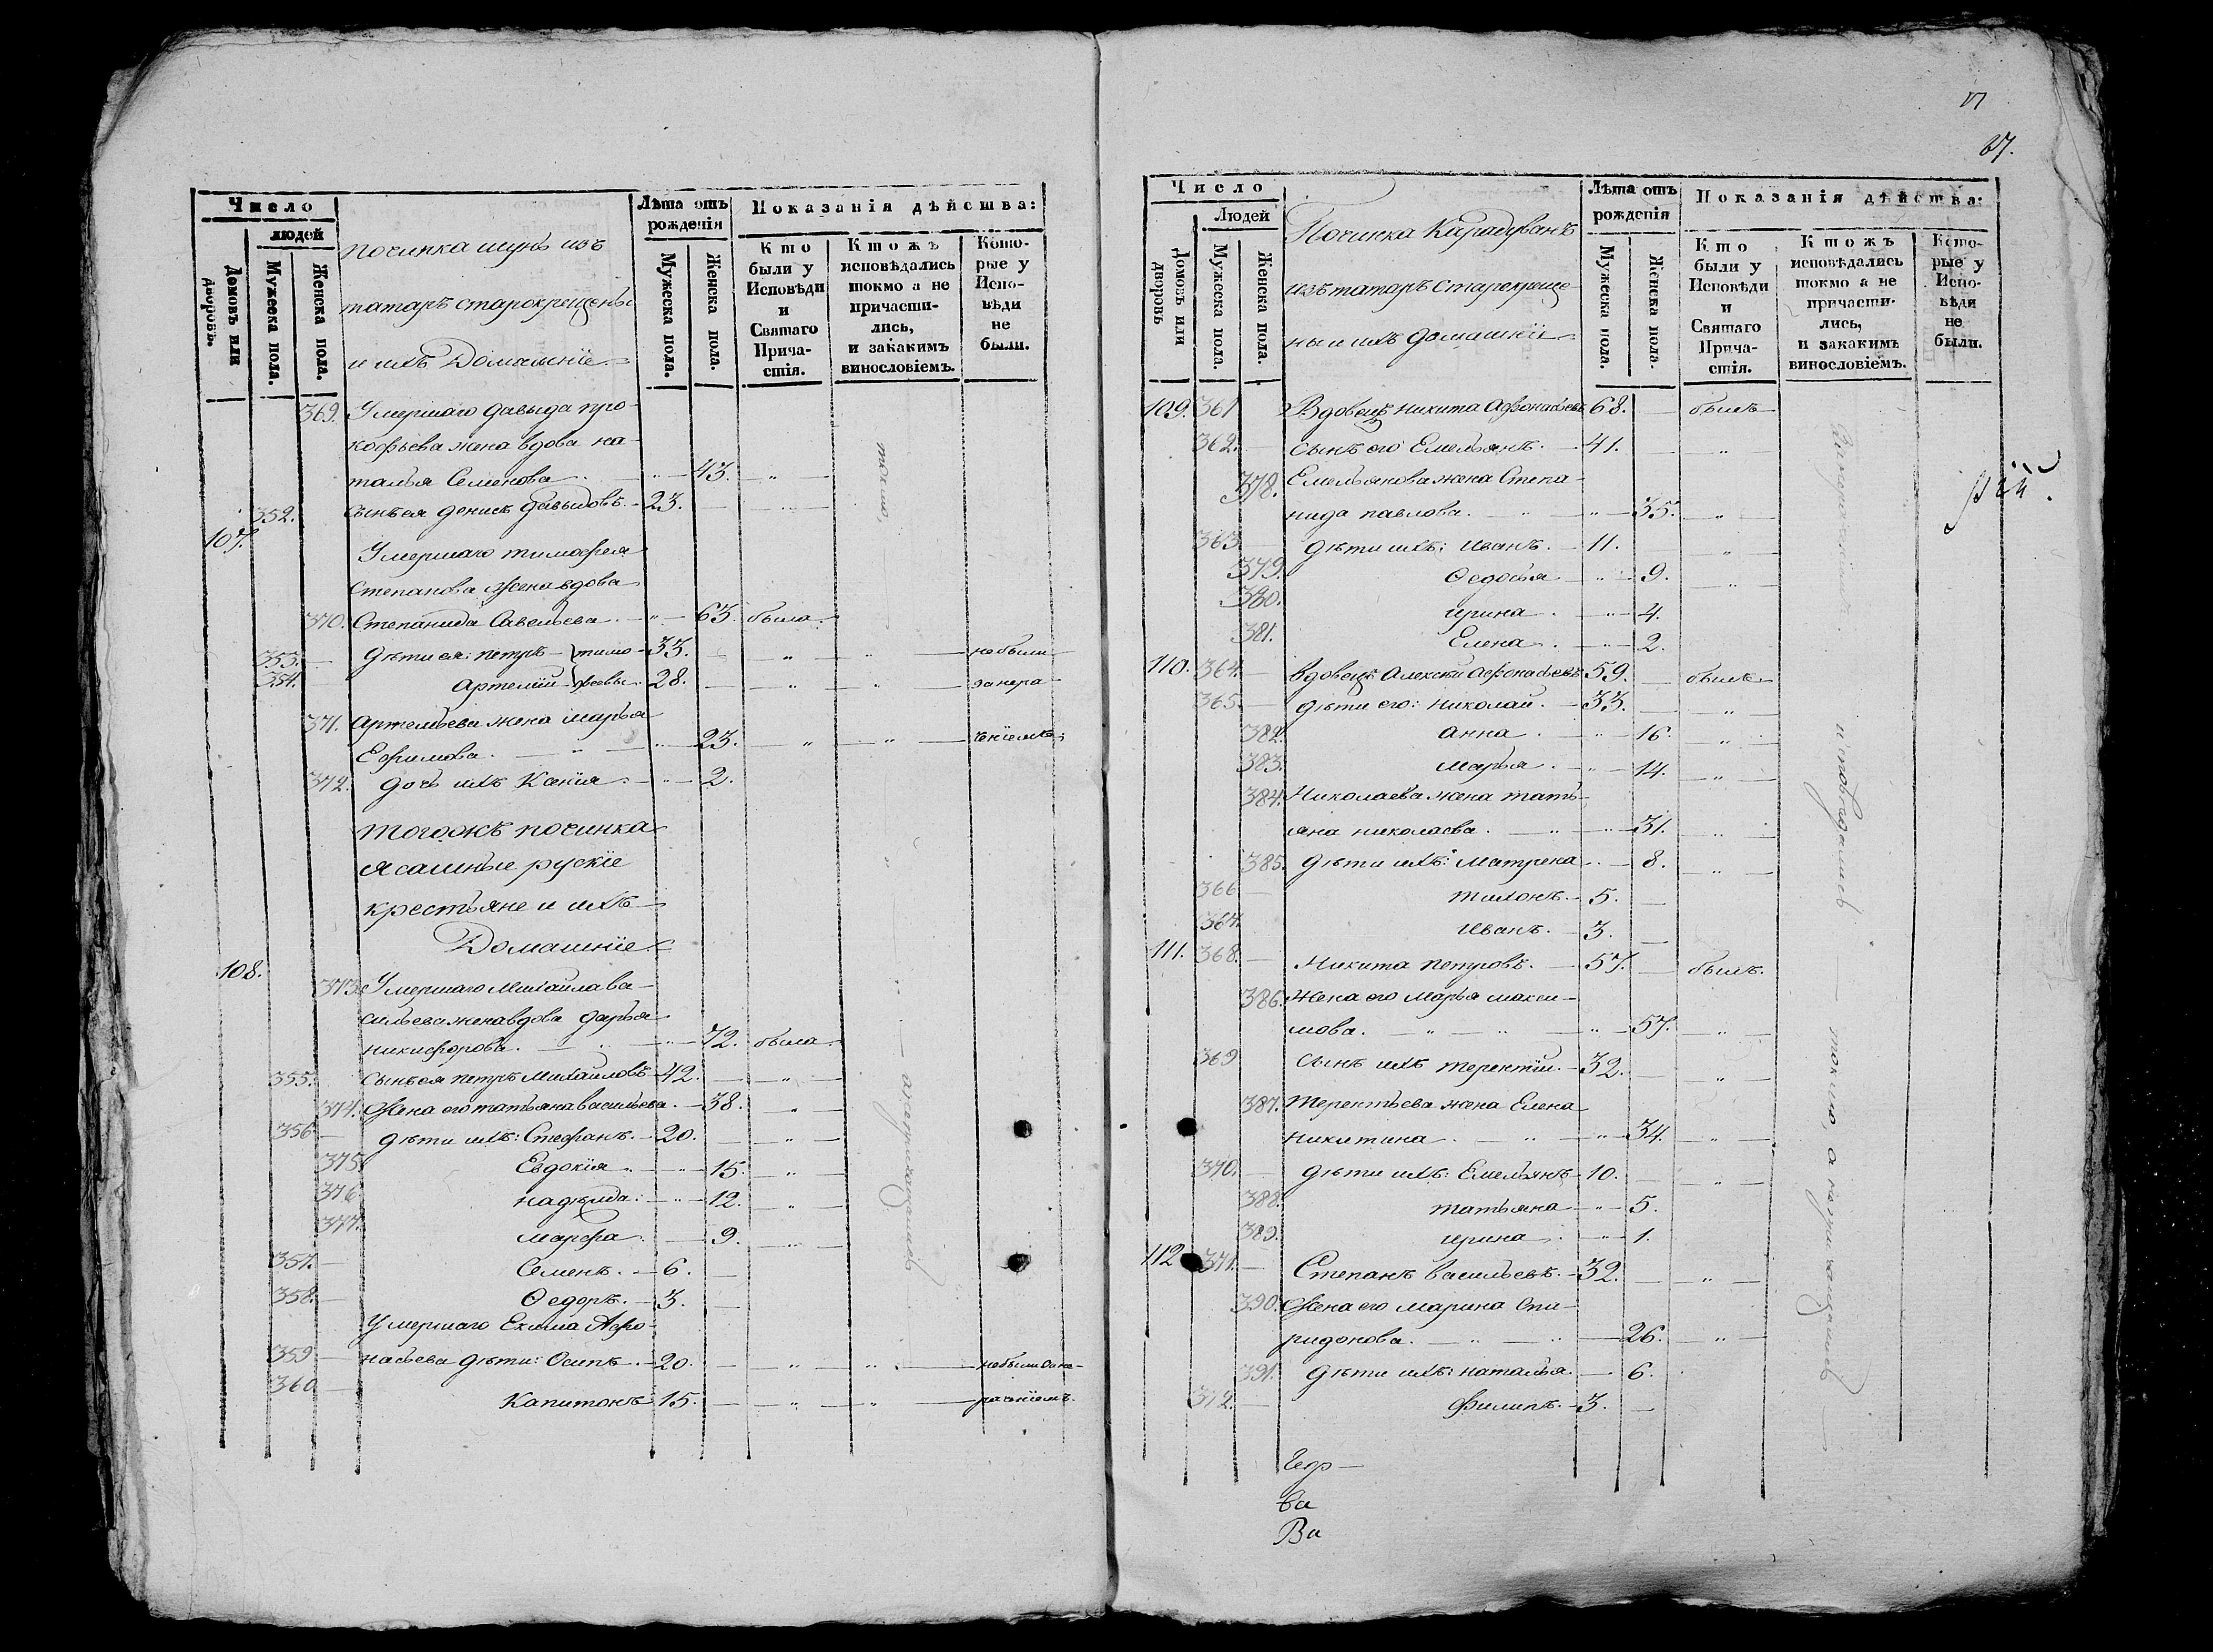 Число
людей
Домовъ или дворовъ.
Мужеска пола.
Женска пола.
починка шунь изъ
татаръ старокрещены
и ихъ Домашніе
Лѣта отъ рожденія
Мужеска пола.
Женска пола.
Показанія дѣйства:
Кто были у Исповѣди и Святаго Причастія.
Ктожъ исповѣдались токмо а не причастились, и закакимъ винословіемъ.
Которые у Исповѣди не были.
369. Умершаго давыда про-
кофьева жена вдова на-
талья Семенова 43. "
352. Сынъ ея денисъ давыдовъ. 23. "
107. Умершаго тимофея
Степанова жена вдова
370. Степанида Савельева 63. была
353. дѣти ея: петръ тимо- 33. " " небыли
354. Артемій феевы. 28. " " занера-
371. Артемьева жена марья
Ефимова. 23. " " ченіемъ
372. дочь ихъ Ксенія 2.
тогожъ починка
Ясашные рускіе
крестьяне и ихъ
Домашніе
108.
373. Умершаго Михаила ва-
сильева жена вдова дарья
никифорова. 72. была
355. Сынъ ея петръ Михаиловъ 42. "
374. Жена его татьяна васильева. 38. "
356 дѣти ихъ: Стефанъ. 20. "
375 Евдокія 15. "
376 надежда: 12. "
377. марфа 9. "
357. Семенъ. 6.
358. Ѳедоръ. 3.
Умершаго Екима Афо-
359 насьева дѣти: Осипъ 20. " " небыли занe-
360 Капитонъ 15. " " раченіемъ.
токмо,
а не причащались
27.
Число
Людей
Домовъ или дворовъ
Мужеска пола.
Женска пола.
Починка Карадуванъ
изъ татаръ Старокреще-
ны и ихъ домашніи
Лѣта отъ рожденія
Мужеска пола.
Женска пола.
Показанія дѣйства:
Кто были у Исповѣди и Святаго Причастія.
Ктожъ исповѣдались токмо а не причастились, и закакимъ винословіемъ.
Которые у Исповѣди не были.
109. 361 Вдовецъ никита Афонасьевъ 68. былъ
362. Сынъ его Емельянъ. 41. "
378. Емельянова жена Степа-
нида павлова. 35. "
363 дѣти ихъ: Иванъ. 11. "
379. Ѳедосья 9. "
380. ирина 4.
381. Елена 2.
110. 364. вдовецъ Алексѣй Афонасьевъ 59. былъ
365. дѣти его: николай. 33. "
382. анна 16. "
383. марья 14. "
384. Николаева жена тать-
яна николаева. 31. "
385. дѣти ихъ: матрена 8. "
366 тихонъ. 5.
367. Иванъ. 3.
111. 368. Никита петровъ. 57. былъ.
386. Жена его марья макси-
мова. 57. "
369 Сынъ ихъ терентій. 32. "
387. терентьева жена Елена
никитина 34. "
370. дѣти ихъ: Емельянъ 10. "
388. татьяна 5.
389. ирина 1.
112 371. Степанъ васильевъ. 32. "
390. Жена его марина Спи-
ридонова. 26. "
391. дѣти ихъ: наталья 6.
372. филипъ. 3.
исповѣдались токмо, а не причащались
Ва